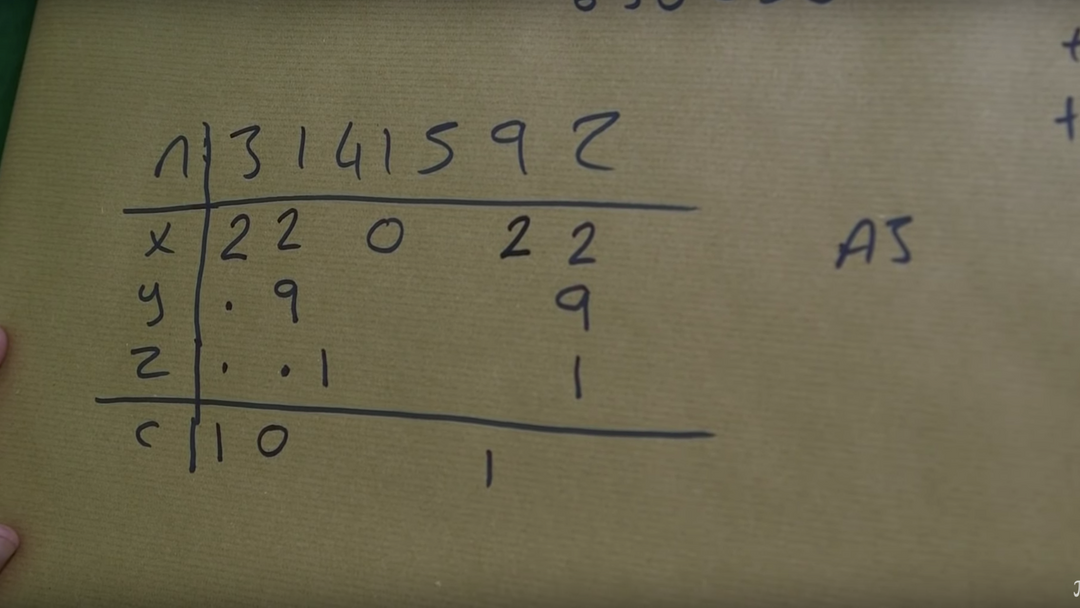 n 3 1 4 1 5 9 2
x 2 2 0 2 2 A5
y . 9 9
z . . 1 1
c 1 0
1